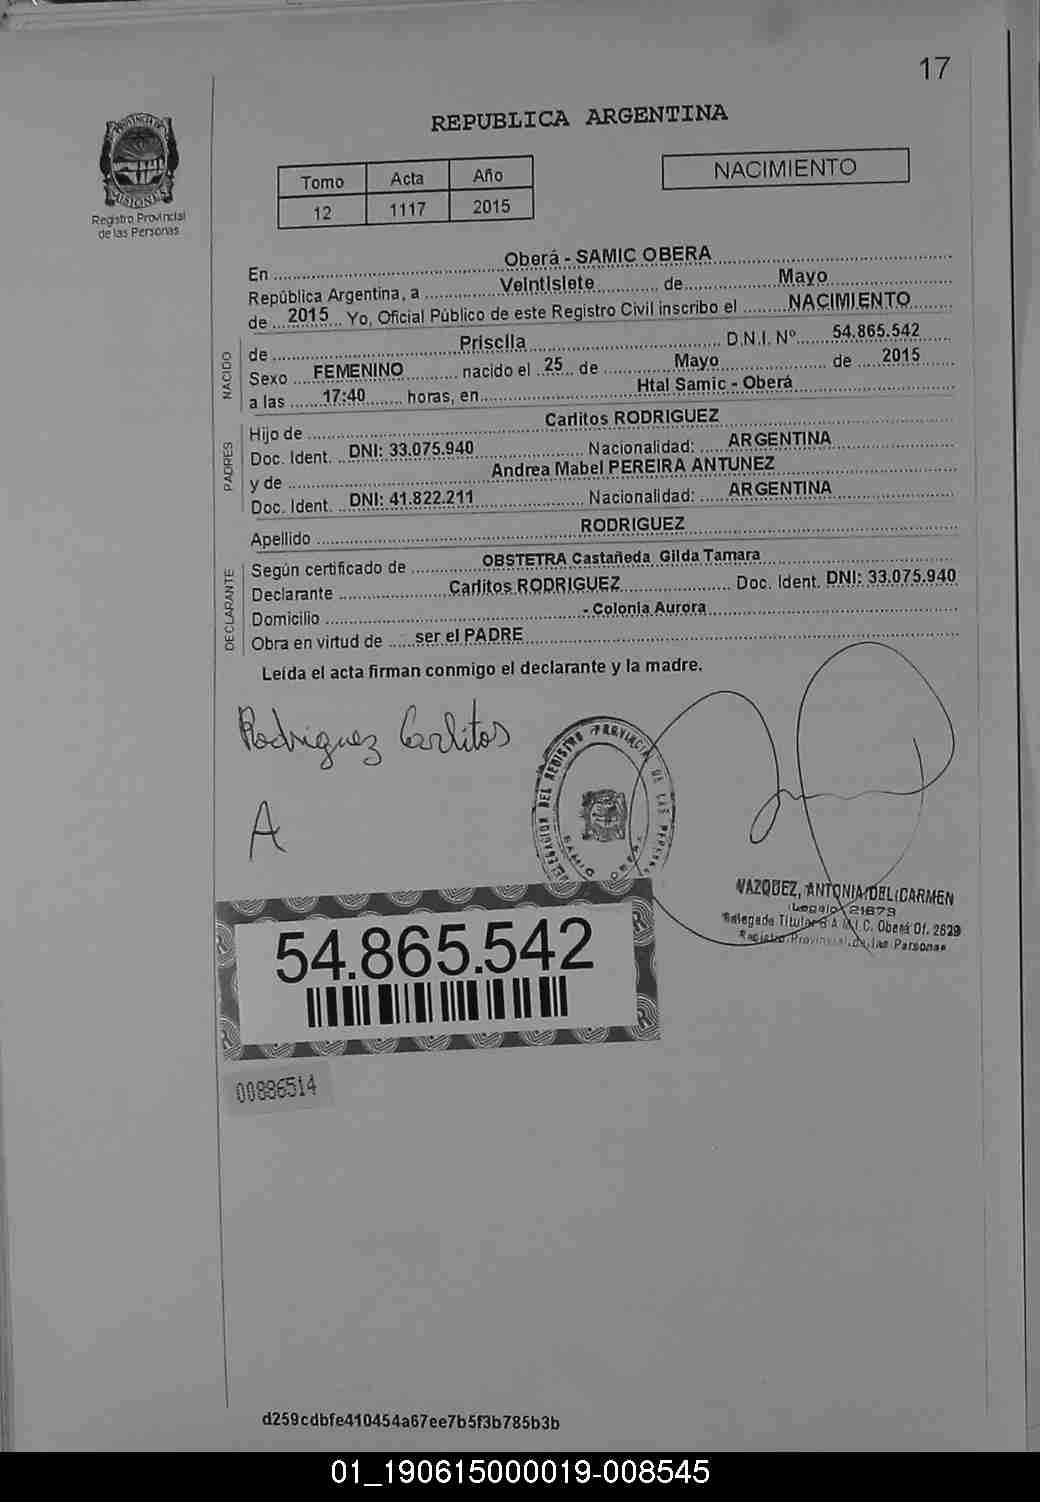 17
PROVINCIA DE
MISIONES
Registro Provincial
de las Personas
REPUBLICA ARGENTINA
Tomo Acta Año
12 1117 2015
NACIMIENTO
En Oberá - SAMIC OBERA
República Argentina, a Veintisiete de Mayo
de 2015 Yo, Oficial Público de este Registro Civil inscribo el NACIMIENTO
NACIDO
de Priscila D.N.I. Nº 54.865.542
Sexo FEMENINO nacido el 25 de Mayo de 2015
a las 17:40 horas, en Htal Samic - Oberá
PADRES
Hijo de Carlitos RODRIGUEZ
Doc. Ident. DNI: 33.075.940 Nacionalidad: ARGENTINA
y de Andrea Mabel PEREIRA ANTUNEZ
Doc. Ident. DNI: 41.822.211 Nacionalidad: ARGENTINA
Apellido RODRIGUEZ
DECLARANTE
Según certificado de OBSTETRA Castañeda Gilda Tamara
Declarante Carlitos RODRIGUEZ Doc. Ident. DNI: 33.075.940
Domicilio - Colonia Aurora
Obra en virtud de ser el PADRE
Leída el acta firman conmigo el declarante y la madre.
Rodriguez Carlitos
A
DELEGACION DEL REGISTRO PROVINCIAL DE LAS PERSONAS
SAMIC OBERA
VAZQUEZ, ANTONIA DEL CARMEN
Legajo 21679
Delegada Titular S.A.M.I.C. Oberá Of. 2629
Registro Provincial de las Personas
54.865.542
00886514
d259cdbfe410454a67ee7b5f3b785b3b
01_190615000019-008545